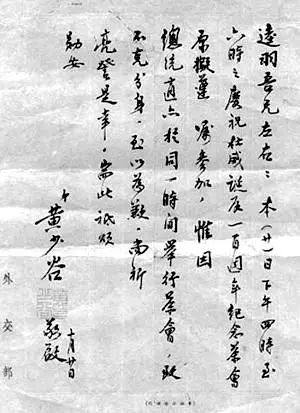 逵羽吾兄左右：本（廿）日下午四時至
六時之慶祝杜威誕辰一百週年紀念茶會
原擬遵 囑參加，惟因
總統適亦於同一時間舉行茶會，致
不克分身，至以為歉，尚祈
亮詧是幸，耑此祗頌
勛安
弟
黃少谷
敬啟
十月廿日
外交部